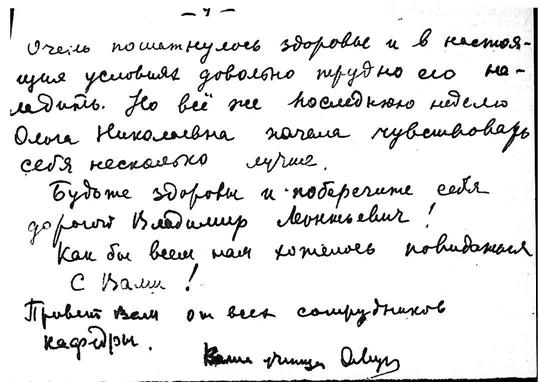 — 4 —
Очень пошатнулось здоровье и в настоя-
щих условиях довольно трудно его на-
ладить. Но всё же последнюю неделю
Ольга Николаевна начала чувствовать
себя несколько лучше.
Будьте здоровы и поберегите себя
дорогой Владимир Леонтьевич!
Как бы всем нам хотелось повидаться
с Вами!
Привет Вам от всех сотрудников
кафедры.
Ваша ученица